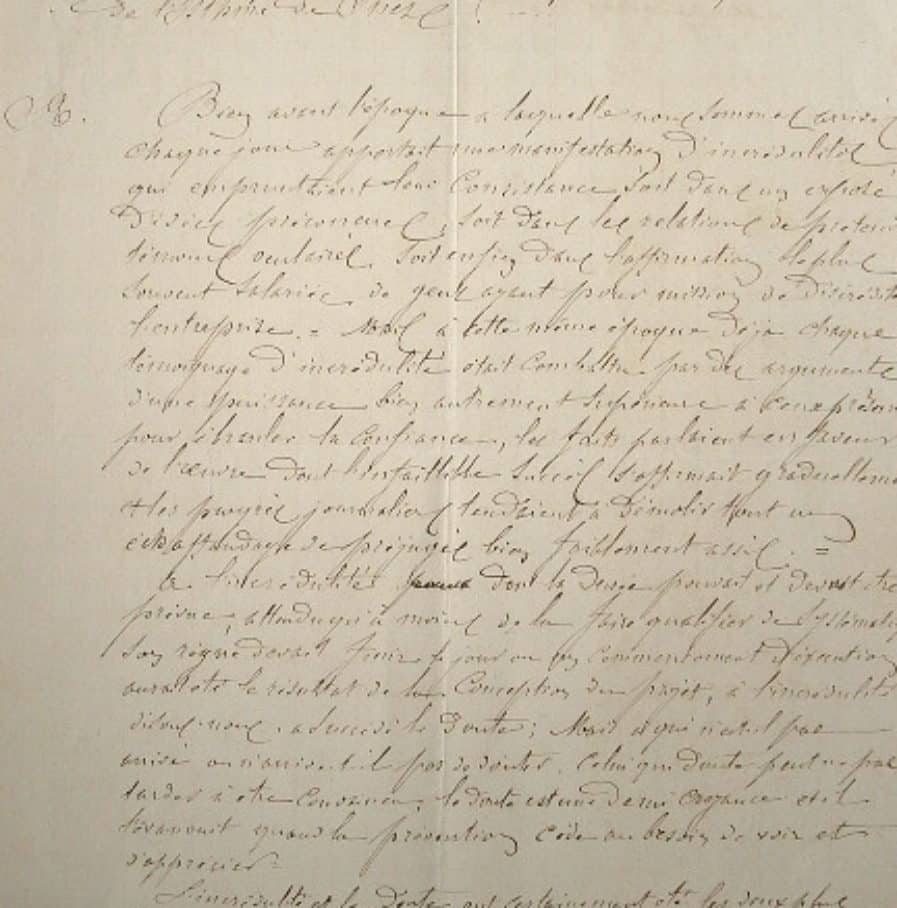 de l'Isthme de Suez
Bien avant l'époque à laquelle nous sommes arrivé
chaque jour apportait une manifestation d'incrédulités
qui empruntaient leur consistance, soit dans un exposé
d'idées préconçues, soit dans les relations de préten
témoins oculaires, soit enfin dans l'affirmation le plus
souvent salariée, de gens ayant pour mission de discrédite
l'entreprise. = Mais à cette même époque déjà chaque
témoignage d'incrédulité était combattu par des arguments
d'une puissance bien autrement supérieure à ceux présen
pour ébranler la confiance, les faits parlaient en faveur
de l'œuvre dont l'infaillible succès s'affirmait graduelleme
et les progrès journaliers tendaient à démolir tout un
échaffaudage de préjugés bien faiblement assis. =
à l'incrédulité dont la durée pouvait et devait être
prévue, attendu qu'à moins de la faire qualifier de systémati
son règne devait finir le jour où un commencement d'exécution
aurait été le résultat de la conception du projet, à l'incrédulité
disons-nous, a succédé le doute; Mais à qui n'est-il pas
arrivé ou n'arrive-t-il pas de douter. Celui qui doute peut ne pas
tarder à être convaincu, le doute est une demi croyance et il
s'évanouit quand la prévention cède au besoin de voir et
d'apprécier =
L'incrédulité et le doute ont certainement été les deux plus